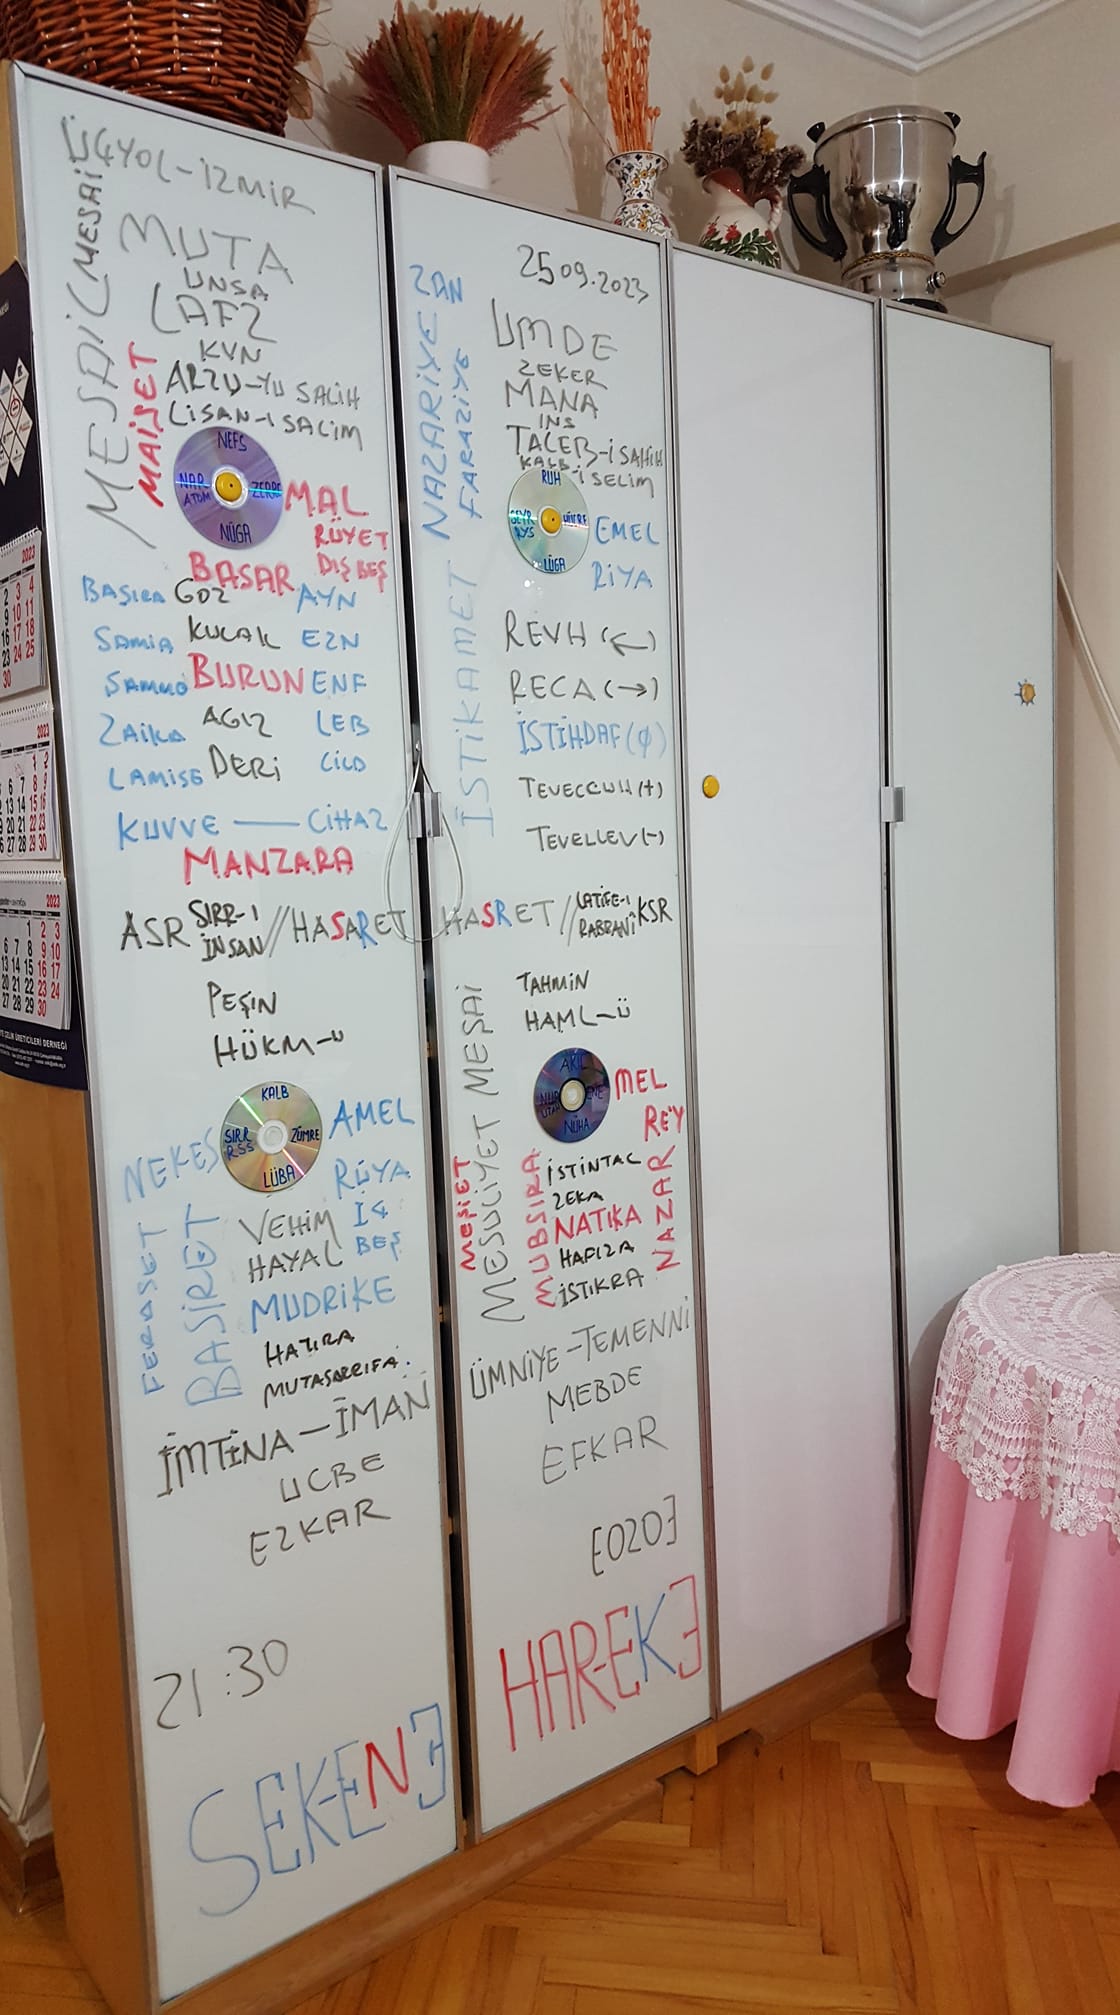 ÜÇYOL-İZMİR
MESAİL MESAİ
MUTA
UNSA
LAFZ
KVN
MAİŞET
ARZU-YU SALİH
LİSAN-I SALİM
NEFS
NAR
ATOM
ZERRE
NÜGA
MAL
RÜYET
DIŞ BEŞ
BASAR
BASIRA GÖZ AYN
SAMİA KULAK EZN
BURUN ENF
ZAİKA AGIZ LEB
LAMİSE DERİ CİLD
KUVVE — CİHAZ
MANZARA
ASR SIRR-I İNSAN // HASARET
PEŞİN
HÜKM-Ü
KALB
SIRR
RSS
ZÜMRE
LÜBA
AMEL
NEKES
RÜYA
İÇ
BEŞ
FERASET
BASİRET
VEHİM
HAYAL
MUDRİKE
HATIRA
MUTASARRIFA
İMTİNA-İMAN
UCBE
EZKAR
21:30
SEK-ENE
25 09.2023
ZAN
NAZARİYE
FARAZİYE
UMDE
ZEKER
MANA
INS
TALEB-İ SAHİH
KALB-İ SELİM
RUH
LÜGA
EMEL
RİYA
İSTİKAMET
REVH (←)
RECA (→)
İSTİHDAF (Ø)
TEVECCUH (+)
TEVELLEV (-)
HASRET // LATİFE-İ RABBANÎ KSR
TAHMİN
HAML-Ü
AKIL
NUR
ENE
NÜHA
MEL
RE'Y
MEŞİET
MESULİYET MEŞAİ
MUBSIRA
İSTİNTAC
ZEKA
NATIKA
HAFIZA
İSTİKRA
NAZAR
ÜMNİYE-TEMENNİ
MEBDE
EFKAR
HAR-EKE
2023
2023
2023